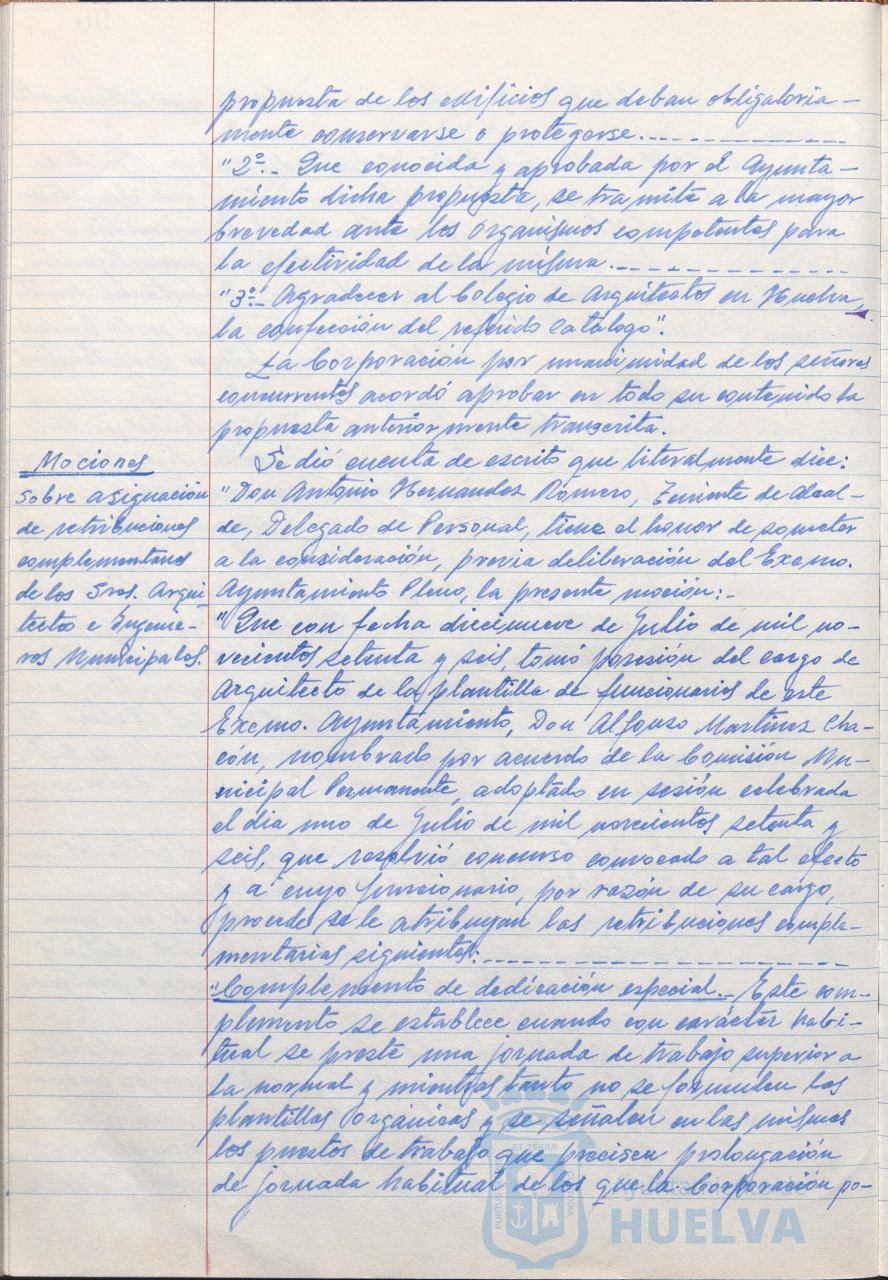 propuesta de los edificios que deban obligatoria-
mente conservarse o protegerse.
"2º.- Que conocida y aprobada por el Ayunta-
miento dicha propuesta, se tramite a la mayor
brevedad ante los Organismos competentes para
la efectividad de la misma.
"3º.- Agradecer al Colegio de Arquitectos en Huelva,
la confección del referido Catálogo".
La Corporación por unanimidad de los señores
concurrentes acordó aprobar en todo su contenido la
propuesta anteriormente transcrita.
Mociones
sobre asignación
de retribuciones
complementarias
de los Sres. Arqui-
tectos e Ingenie-
ros Municipales.
Se dió cuenta de escrito que literalmente dice:
"Don Antonio Hernandez Romero, Teniente de Alcal-
de, Delegado de Personal, tiene el honor de someter
a la consideración, previa deliberación del Excmo.
Ayuntamiento Pleno, la presente moción:-
"Que con fecha diecinueve de Julio de mil no-
vecientos setenta y seis, tomó posesión del cargo de
Arquitecto de la plantilla de funcionarios de este
Excmo. Ayuntamiento, Don Alfonso Martínez Cha-
cón, nombrado por acuerdo de la Comisión Mu-
nicipal Permanente, adoptado en sesión celebrada
el dia uno de Julio de mil novecientos setenta y
seis, que resolvió concurso convocado a tal efecto
y a cuyo funcionario, por razón de su cargo,
procede se le atribuyan las retribuciones comple-
mentarias siguientes:
"Complemento de dedicación especial.- Este com-
plemento se establece cuando con carácter habi-
tual se preste una jornada de trabajo superior a
la normal y mientras tanto no se formulen las
plantillas orgánicas y se señalen en las mismas
los puestos de trabajo que precisen prolongación
de jornada habitual de los que la Corporación po-
Ayuntamiento de
HUELVA